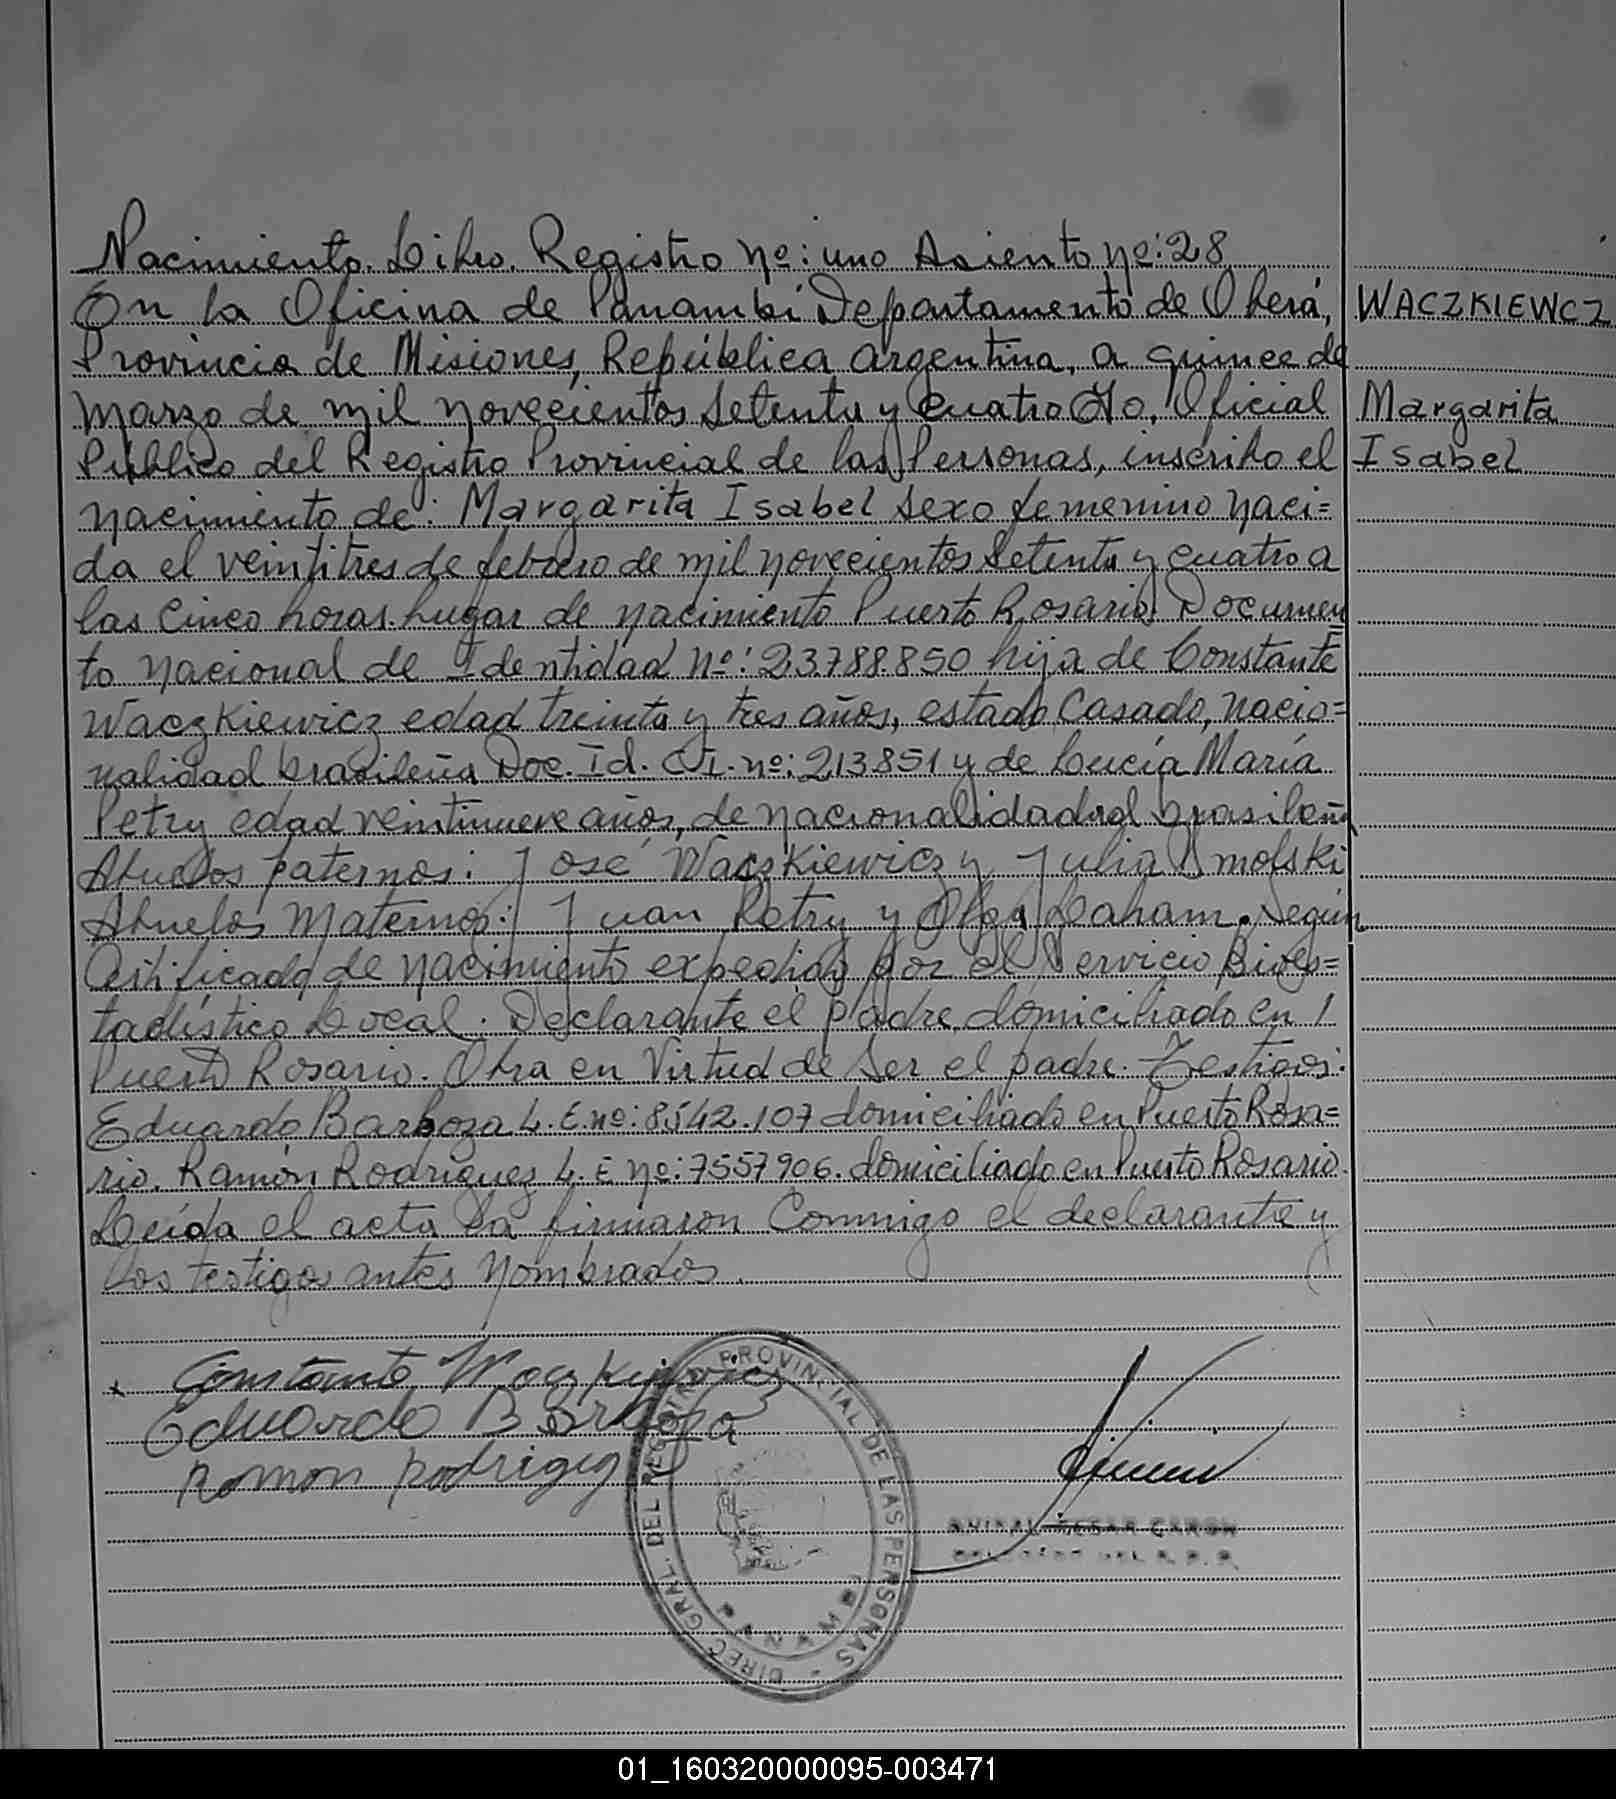 Nacimiento. Libro. Registro Nº: uno Asiento Nº: 28
En la Oficina de Panambí Departamento de Oberá,
Provincia de Misiones, República Argentina, a quince de
marzo de mil novecientos setenta y cuatro Yo, Oficial
Público del Registro Provincial de las Personas, inscribo el
nacimiento de: Margarita Isabel sexo femenino naci=
da el veintitres de febrero de mil novecientos setenta y cuatro a
las cinco horas. Lugar de nacimiento Puerto Rosario. Documen
to nacional de Identidad Nº: 23.788.850 hija de Constante
Waczkiewicz edad treinta y tres años, estado Casado, nacio=
nalidad brasileña Doc. Id. C.I. nº: 213851 y de Lucía María
Petry edad veintinueve años, de nacionalidad brasileña
Abuelos paternos: José Waczkiewicz y Julia Smolski
Abuelos Maternos: Juan Petry y Olga Según
Certificado de nacimiento expedido por el Servicio Bioes=
tadístico Local. Declarante el padre, domiciliado en
Puerto Rosario. Obra en Virtud de ser el padre. Testigos:
Eduardo Barboza L.E. nº: 8542.107 domiciliado en Puerto Rosa=
rio. Ramón Rodríguez L.E nº: 7557906. domiciliado en Puerto Rosario.
Leída el acta la firmaron Conmigo el declarante y
los testigos antes nombrados.
WACZKIEWCZ
Margarita
Isabel
x Constante Waczkiewicz
Eduardo Barboza
Ramon Rodrigez
DIREC GRAL. DEL REGISTRO PROVINCIAL DE LAS PERSONAS -
PANAMBI
01_160320000095-003471